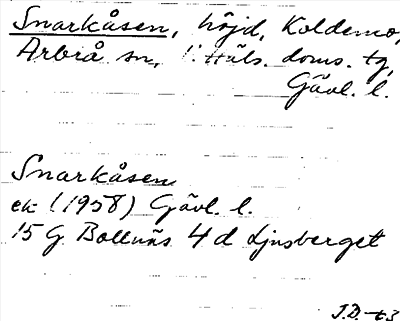 Snarkåsen, höjd, Koldemo,
Arbrå sn, V. Häls. doms. tg,
Gävl. l.
Snarkåsen
ek (1958) Gävl. l.
15 G Bollnäs 4 d Ljusberget
J.D. -63